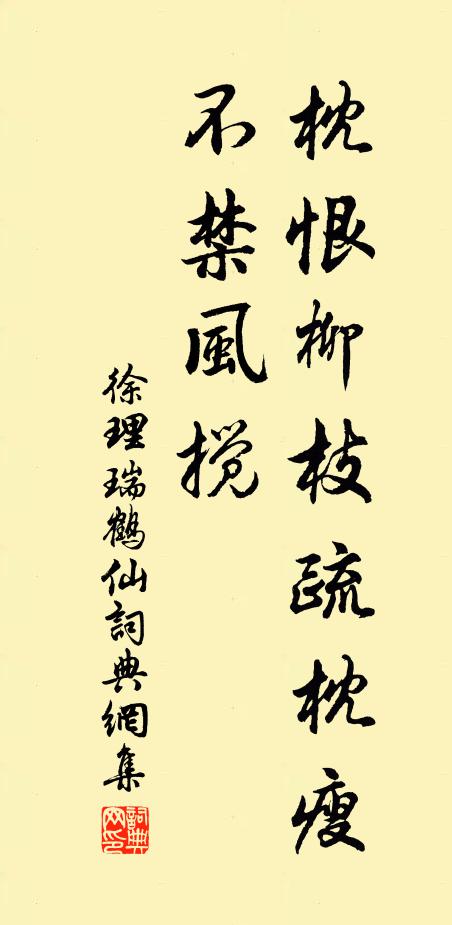 枕恨柳枝疏枕瘦
不禁風搅
徐理瑞鶴仙詞典網集
詞典网印